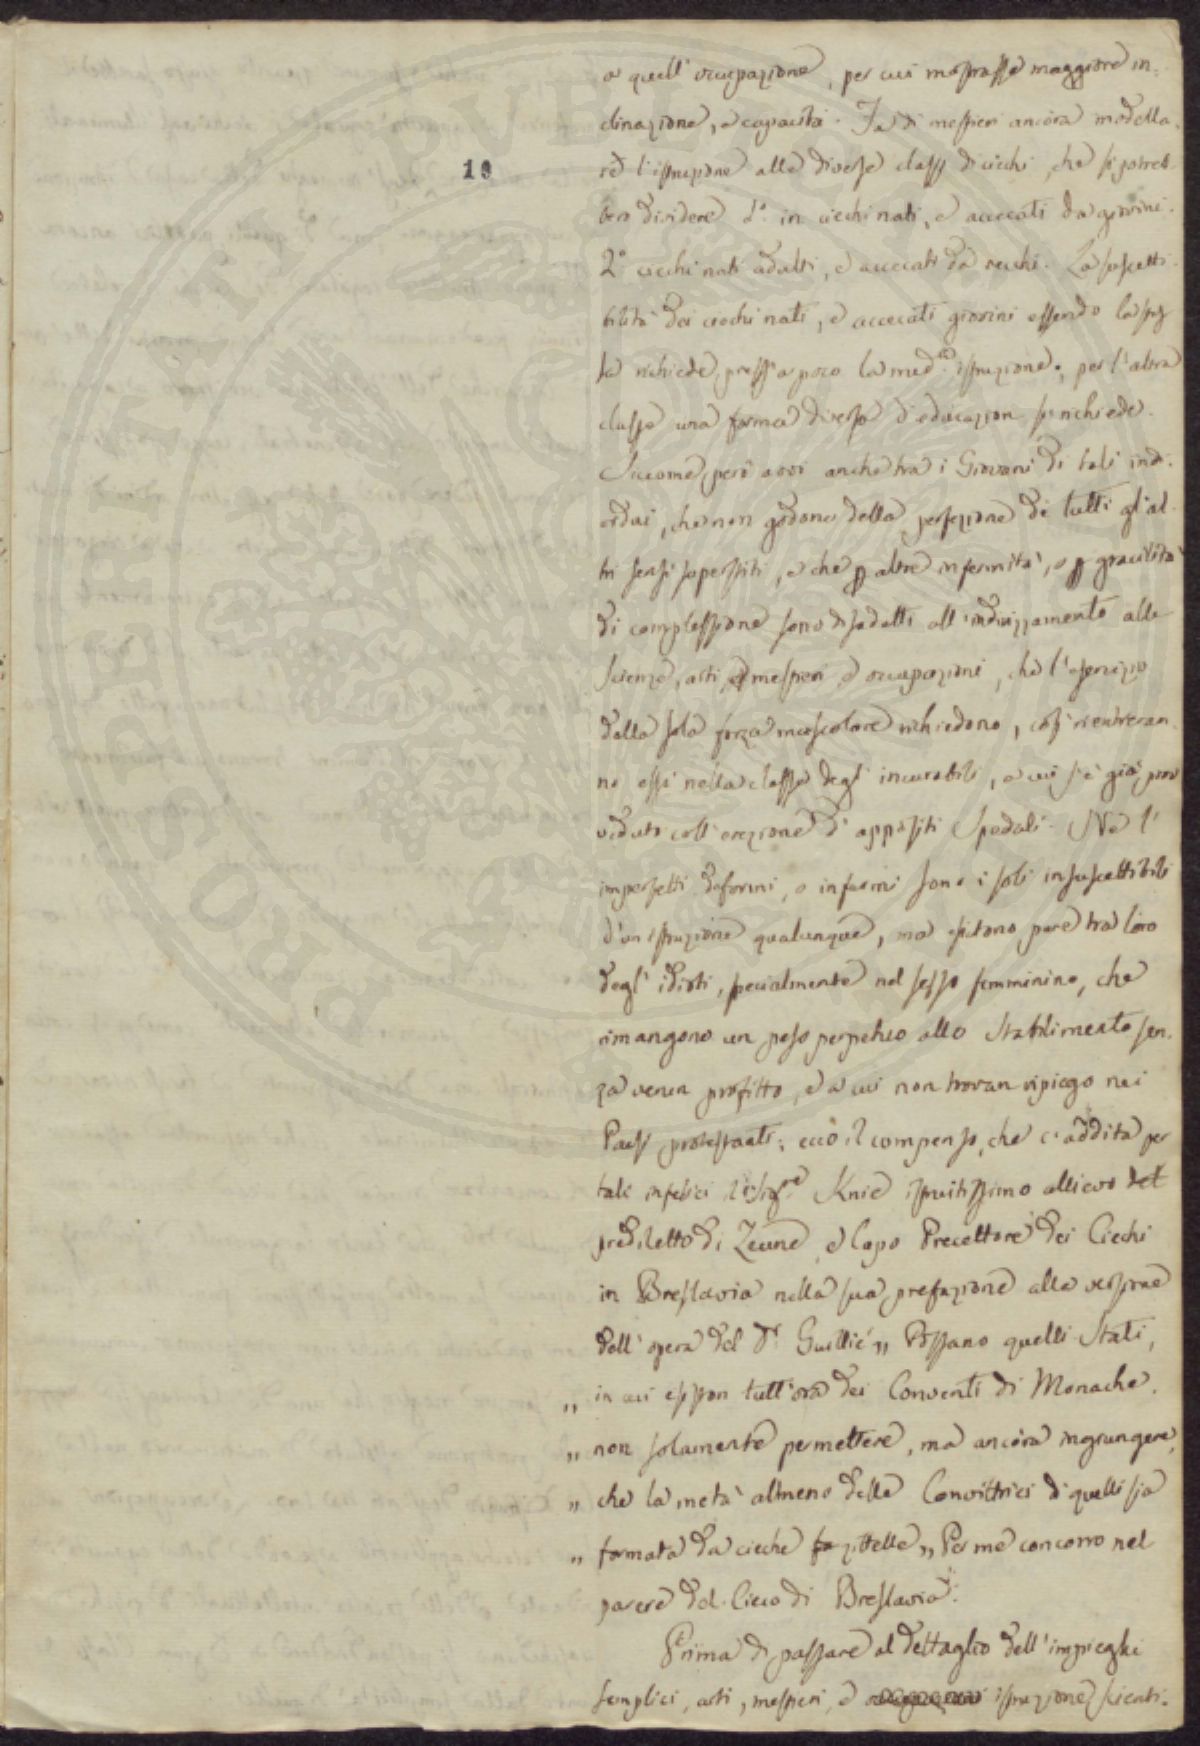 19
o quell' occupazione, per cui mostrasse maggiore in-
clinazione, e capacità. Fa di mestieri ancora modella-
re l'istruzione alle diverse classi di ciechi, che si potreb-
bero dividere 1.º in ciechi nati, e acciecati da giovini.
2.º ciechi nati adulti, e acciecati da vecchi. La suscetti-
bilità dei ciechi nati, e acciecati giovini essendo la stes-
sa richiede press'a poco la med.ma istruzione, per l'altra
classe una forma diversa d'educazion si richiede.
Siccome però avvi anche tra i Giovani di tali indi-
vidui, che non godono della perfezione di tutti gl'al-
tri sensi superstiti, e che p altre infermità, o p gracilità
di complessione sono disadatti all'indirizzamento alle
scienze, arti, e mestieri, e occupazioni, che l'esercizio
della sola forza muscolare richiedono, così rientreran-
no essi nella classe degl' incurabili, a cui s'è già prov-
veduto coll'erezione d' appositi Spedali. Nè l'
imperfetti deformi, o infermi sono i soli insuscettibili
d'un istruzione qualunque, ma esistono pure tra loro
degl' idioti, specialmente nel sesso femminino, che
rimangono un peso perpetuo allo Stabilimento sen-
za verun profitto, e a cui non trovan ripiego nei
Paesi protestanti; ecco il compenso, che c'addita per
tali infelici il Sig.re Knie istruitissimo allievo del
prediletto di Zeune, e Capo Precettore dei Ciechi
in Breslavia nella sua prefazione alla versione
dell' opera del Dr. Guillié „ Possano quelli Stati,
„ in cui esiston tutt'ora dei Conventi di Monache,
„ non solamente permettere, ma ancora ingiungere,
„ che la metà almeno delle Convittrici di quelli sia
„ formata da cieche zittelle „ Per me concorro nel
parere del Cieco di Breslavia.
Prima di passare al dettaglio dell' impieghi
semplici, arti, mestieri, e istruzione scienti-